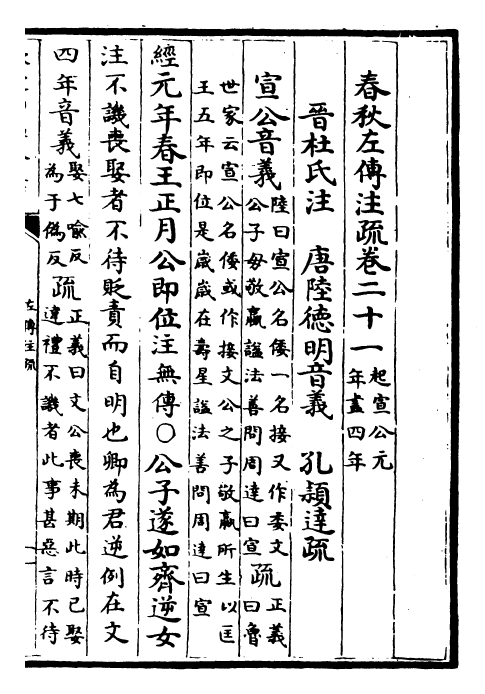 春秋左傳注疏卷二十一起宣公元年盡四年
晉杜氏注 唐陸德明音義 孔穎達疏
宣公音義陸曰宣公名倭一名接又作委文公子母敬嬴諡法善問周達曰宣疏正義曰魯
世家云宣公名倭或作接文公之子敬嬴所生以匡王五年即位是歲歲在壽星諡法善問周達曰宣
經元年春王正月公即位注無傳○公子遂如齊逆女
注不譏喪娶者不待貶責而自明也卿為君逆例在文
四年音義娶七喻反為于偽反疏正義曰文公喪未期此時已娶違禮不譏者此事甚惡言不待
左傳注疏
一